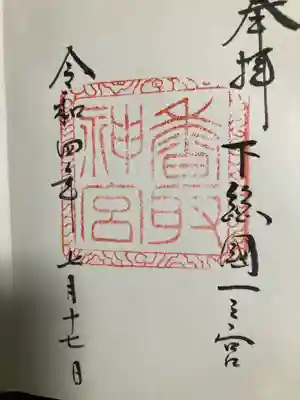 奉拝
下総國一之宮
香取
神宮
令和四年 月十七日